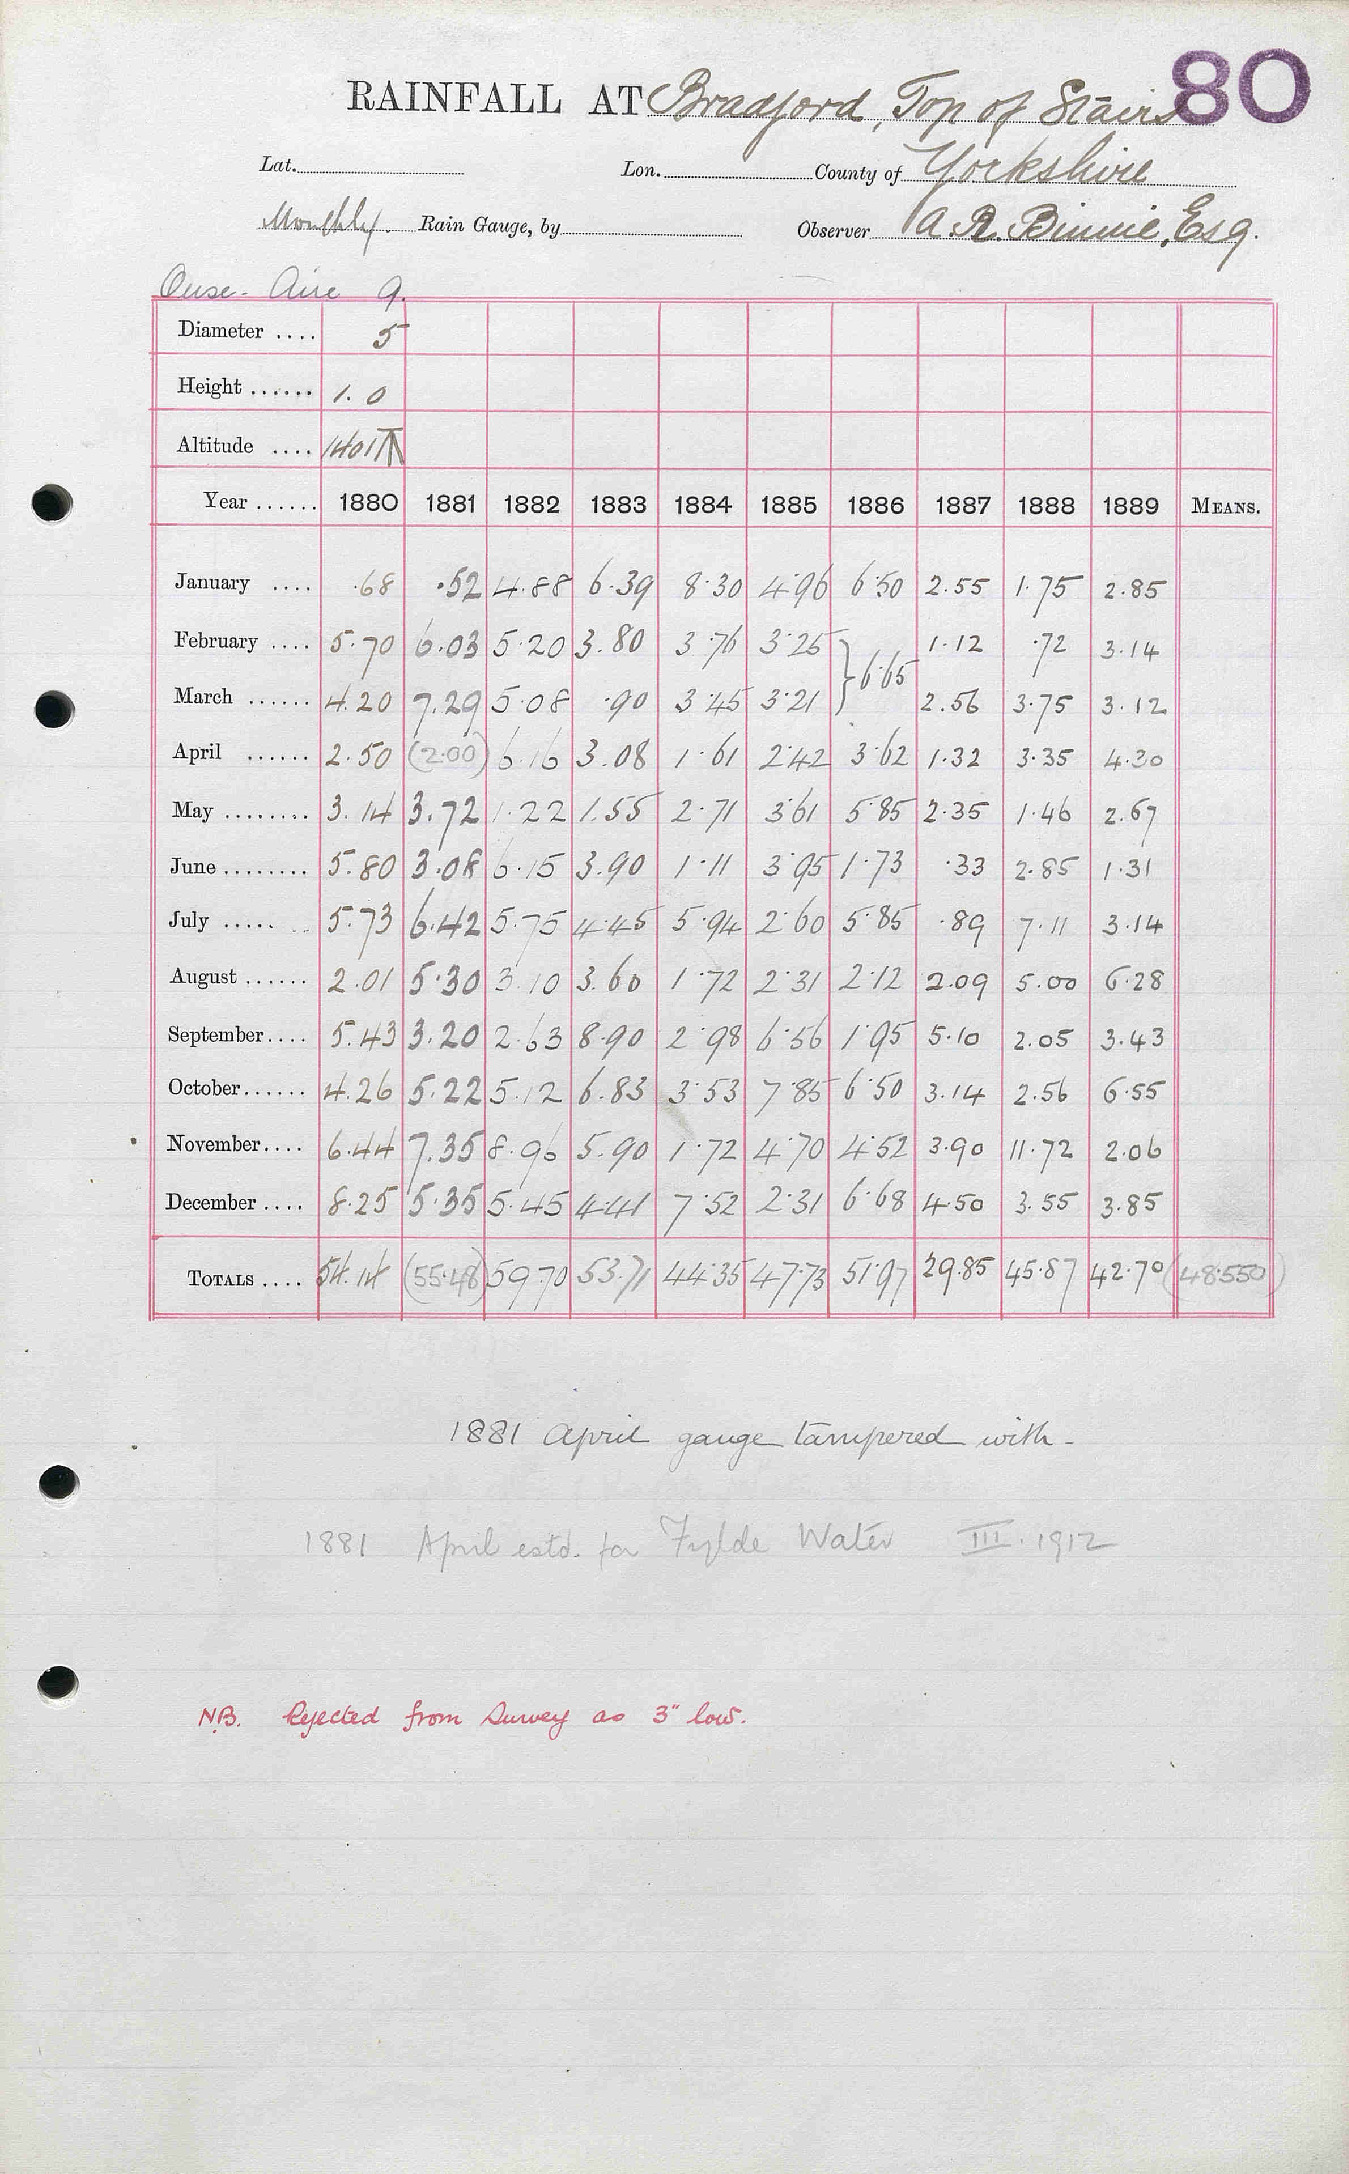 80
RAINFALL AT Bradford, Top of Stairs
Lat. Lon. County of Yorkshire
Monthly. Rain Gauge, by Observer A R. Binnie, Esq.
Ouse-Aire 9.
Diameter .... 5
Height ...... 1.0
Altitude .... 1401 T
Year ...... 1880 1881 1882 1883 1884 1885 1886 1887 1888 1889 MEANS.
January .... .68 .52 4.88 6.39 8.30 4.96 6.50 2.55 1.75 2.85
February .... 5.70 6.03 5.20 3.80 3.76 3.25 } 6.65 1.12 .72 3.14
March ...... 4.20 7.29 5.08 .90 3.45 3.21 2.56 3.75 3.12
April ...... 2.50 (2.00) 6.16 3.08 1.61 2.42 3.62 1.32 3.35 4.30
May ........ 3.14 3.72 1.22 1.55 2.71 3.61 5.85 2.35 1.46 2.67
June ........ 5.80 3.08 6.15 3.90 1.11 3.95 1.73 .33 2.85 1.31
July ..... .. 5.73 6.42 5.75 4.45 5.94 2.60 5.85 .89 7.11 3.14
August ...... 2.01 5.30 3.10 3.60 1.72 2.31 2.12 2.09 5.00 6.28
September.... 5.43 3.20 2.63 8.90 2.98 6.56 1.95 5.10 2.05 3.43
October...... 4.26 5.22 5.12 6.83 3.53 7.85 6.50 3.14 2.56 6.55
November.... 6.44 7.35 8.96 5.90 1.72 4.70 4.52 3.90 11.72 2.06
December .... 8.25 5.35 5.45 4.41 7.52 2.31 6.68 4.50 3.55 3.85
TOTALS .... 54.14 (55.48) 59.70 53.71 44.35 47.73 51.97 29.85 45.87 42.70 (48.550)
1881 April gauge tampered with-
1881 April estd. for Fylde Water III. 1912
N.B. Rejected from Survey as 3" low.